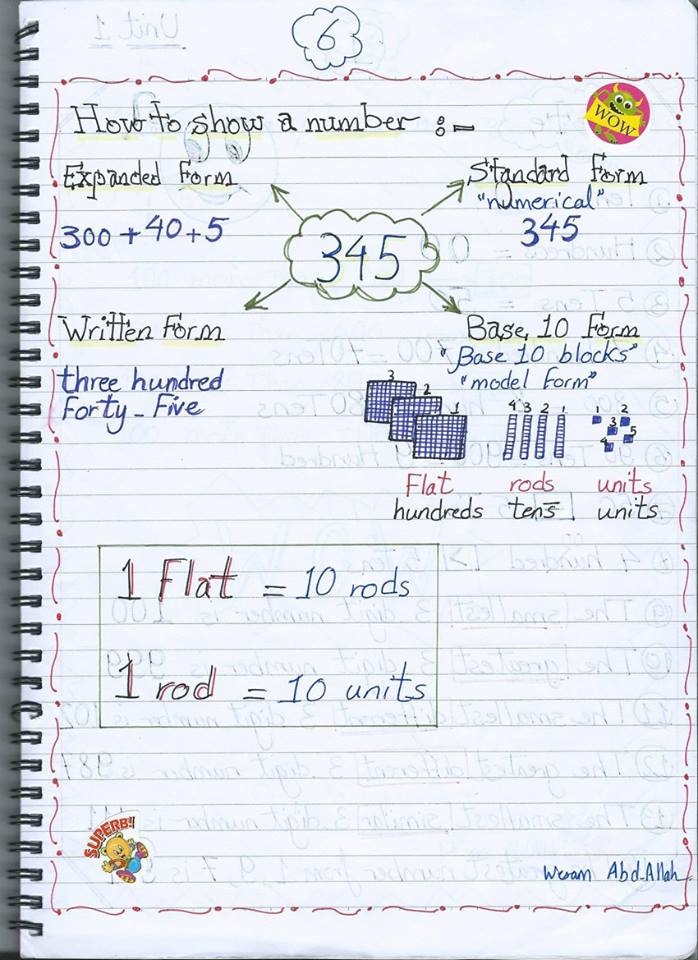 6
How to show a number :-
WOW
Expanded Form
300 + 40 + 5
Standard Form
"numerical"
345
345
Written Form
three hundred
Forty - Five
Base 10 Form
"Base 10 blocks"
"model Form"
3 2 1
4 3 2 1
1 2 3 4 5
Flat rods units
hundreds tens units
1 Flat = 10 rods
1 rod = 10 units
SUPERB!
Weram Abd-Allah